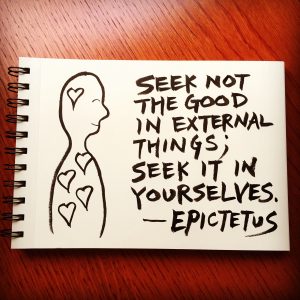 SEEK NOT
THE GOOD
IN EXTERNAL
THINGS;
SEEK IT IN
YOURSELVES.
— EPICTETUS